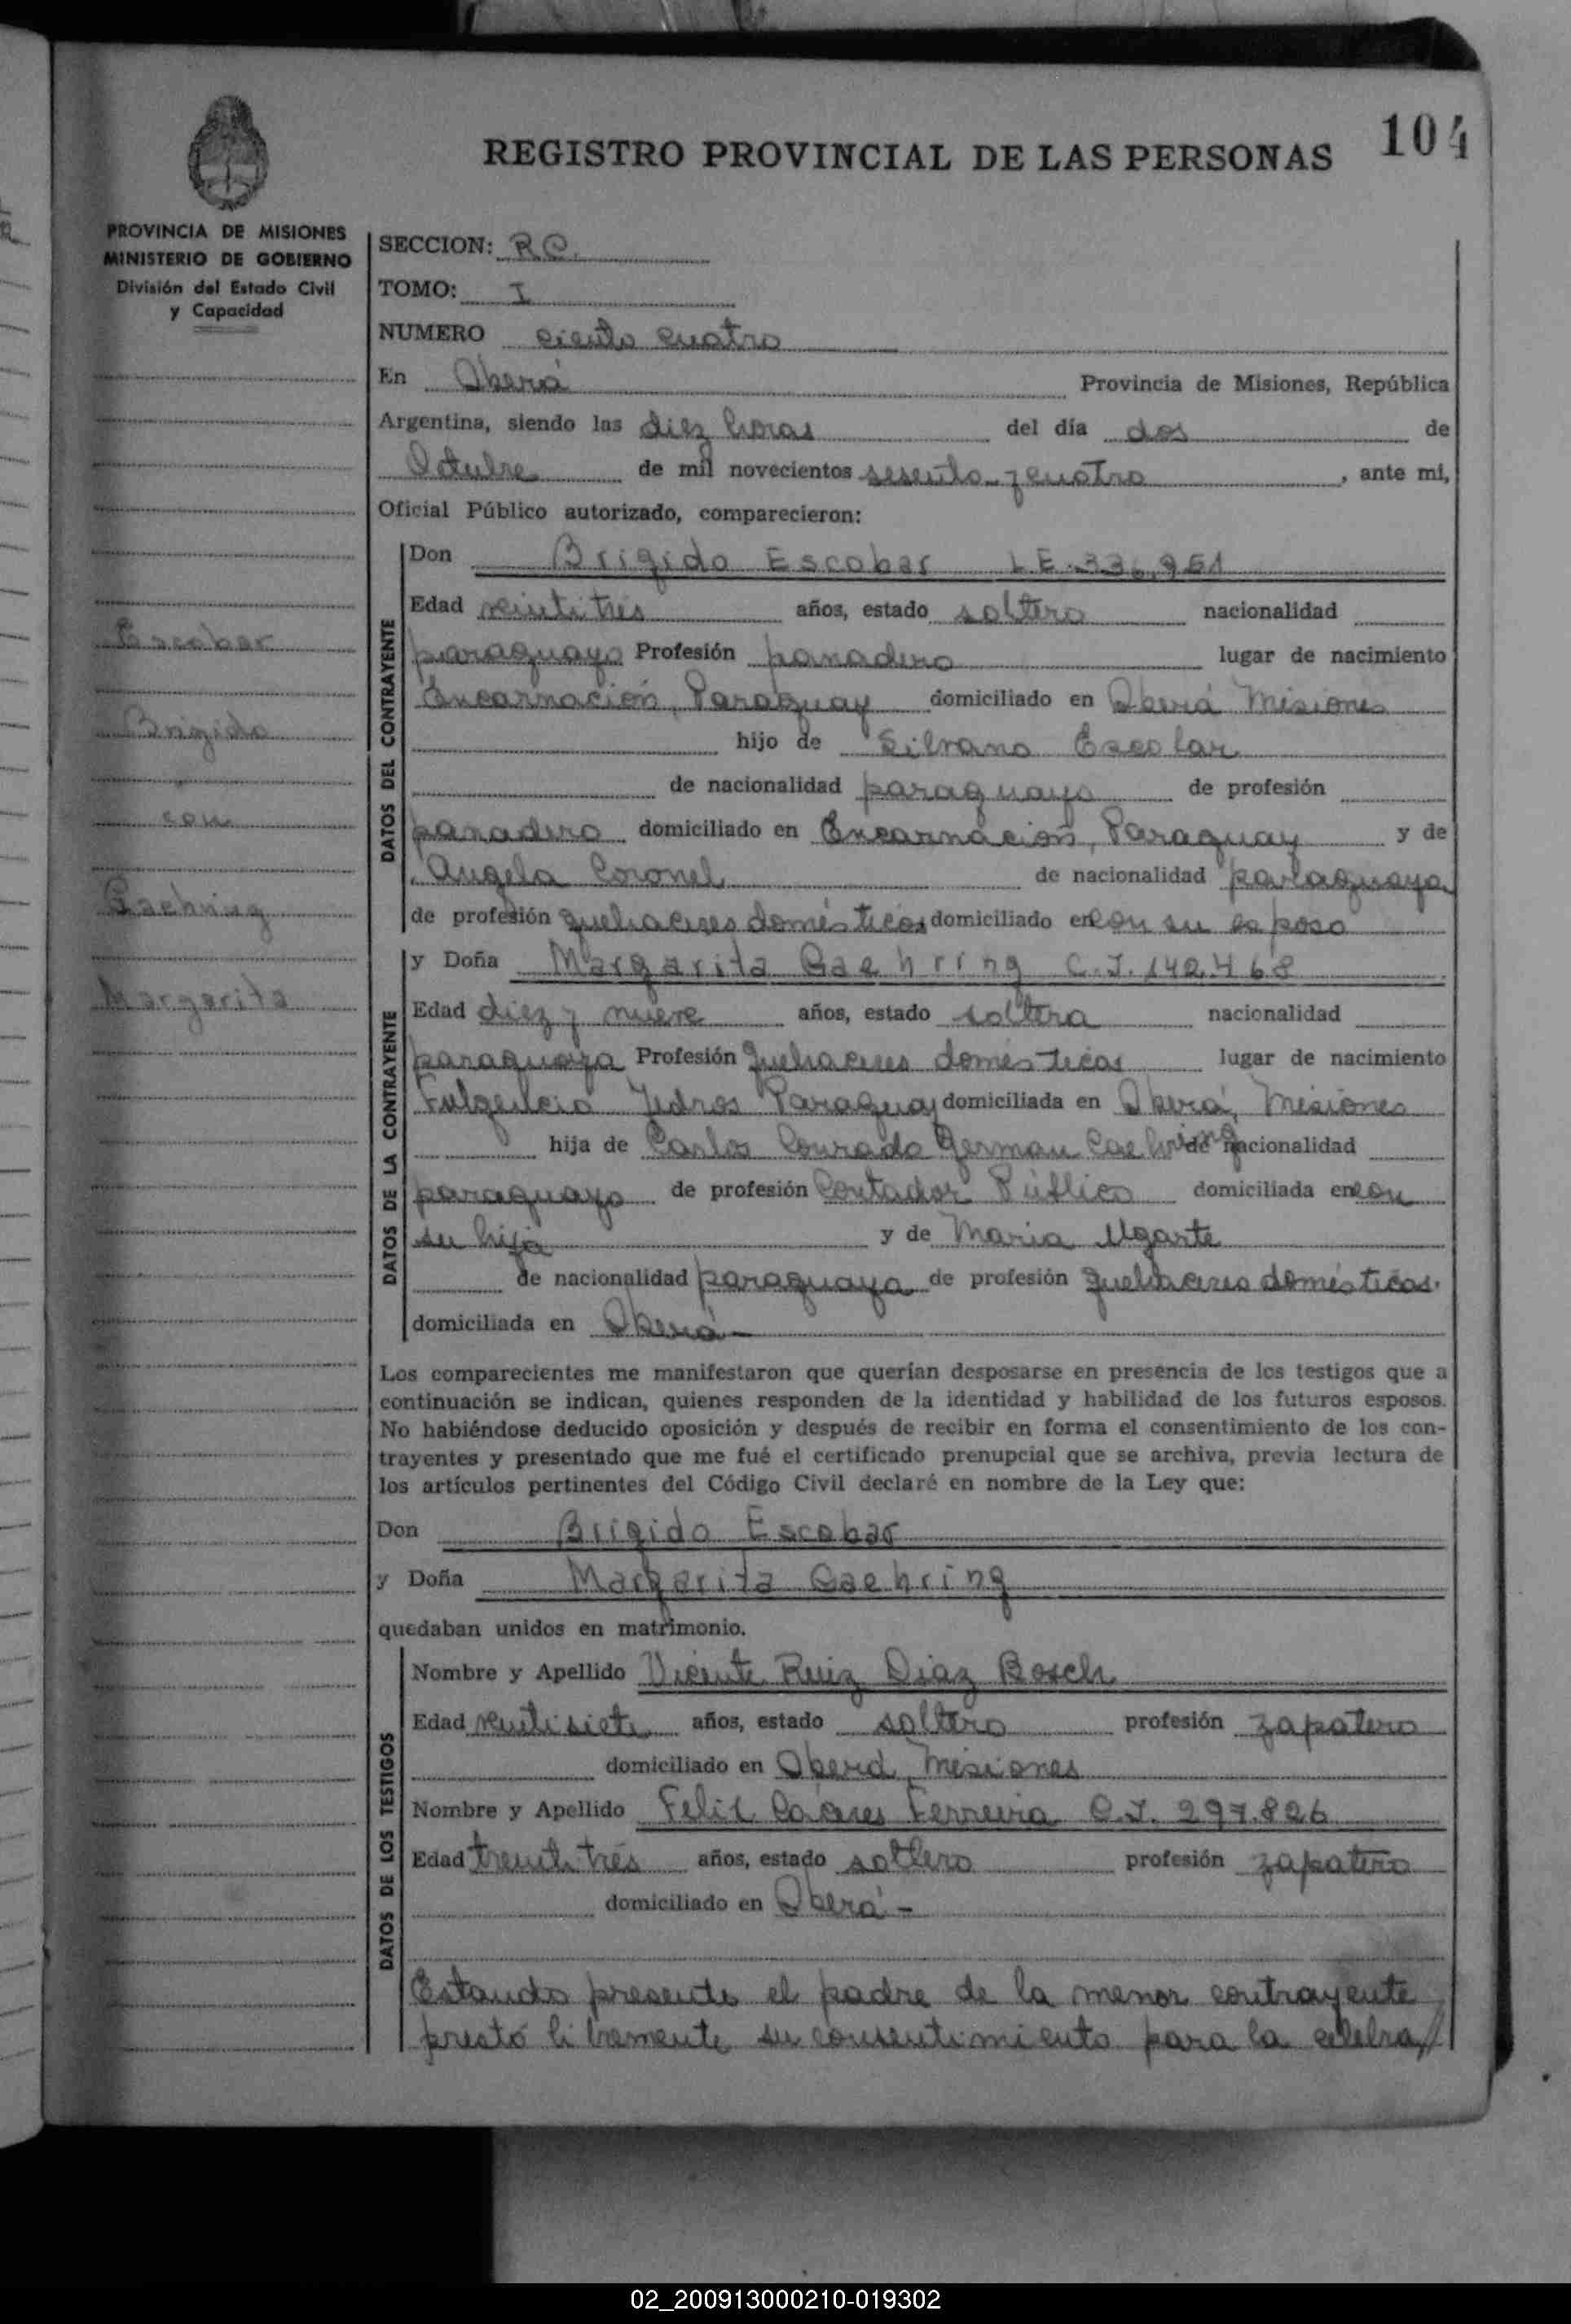 104
REGISTRO PROVINCIAL DE LAS PERSONAS
PROVINCIA DE MISIONES
MINISTERIO DE GOBIERNO
División del Estado Civil
y Capacidad
SECCION: R.C.
TOMO: I
NUMERO ciento cuatro
En Oberá Provincia de Misiones, República
Argentina, siendo las diez horas del día dos de
Octubre de mil novecientos sesenta y cuatro, ante mi,
Oficial Público autorizado, comparecieron:
Escobar
Brigido
con
Gaehring
Margarita
DATOS DEL CONTRAYENTE
Don Brigido Escobar L.E. 336,951
Edad veintitres años, estado soltero nacionalidad
paraguayo Profesión panadero lugar de nacimiento
Encarnación, Paraguay domiciliado en Oberá Misiones
hijo de Silvano Escobar
de nacionalidad paraguayo de profesión
panadero domiciliado en Encarnación, Paraguay y de
Angela Coronel de nacionalidad paraguaya
de profesión quehaceres domésticos domiciliado en con su esposo
DATOS DE LA CONTRAYENTE
y Doña Margarita Gaehring C.I. 142.468
Edad diez y nueve años, estado soltera nacionalidad
paraguaya Profesión quehaceres domésticos lugar de nacimiento
Fulgencio Yedros Paraguay domiciliada en Oberá, Misiones
hija de Carlos Conrado German Gaehring de nacionalidad
paraguayo de profesión Contador Público domiciliada en con
su hija y de Maria Ugarte
de nacionalidad paraguaya de profesión quehaceres domésticos.
domiciliada en Oberá -
Los comparecientes me manifestaron que querían desposarse en presencia de los testigos que a
continuación se indican, quienes responden de la identidad y habilidad de los futuros esposos.
No habiéndose deducido oposición y después de recibir en forma el consentimiento de los con-
trayentes y presentado que me fué el certificado prenupcial que se archiva, previa lectura de
los artículos pertinentes del Código Civil declaré en nombre de la Ley que:
Don Brigido Escobar
y Doña Margarita Gaehring
quedaban unidos en matrimonio.
DATOS DE LOS TESTIGOS
Nombre y Apellido Vicente Ruiz Diaz Bosch
Edad veintisiete años, estado soltero profesión zapatero
domiciliado en Oberá, Misiones
Nombre y Apellido Felix Caceres Ferreira C.I. 297.826
Edad treinti tres años, estado soltero profesión zapatero
domiciliado en Oberá -
Estando presente el padre de la menor contrayente
prestó libremente su consentimiento para la celebra/
02_200913000210-019302